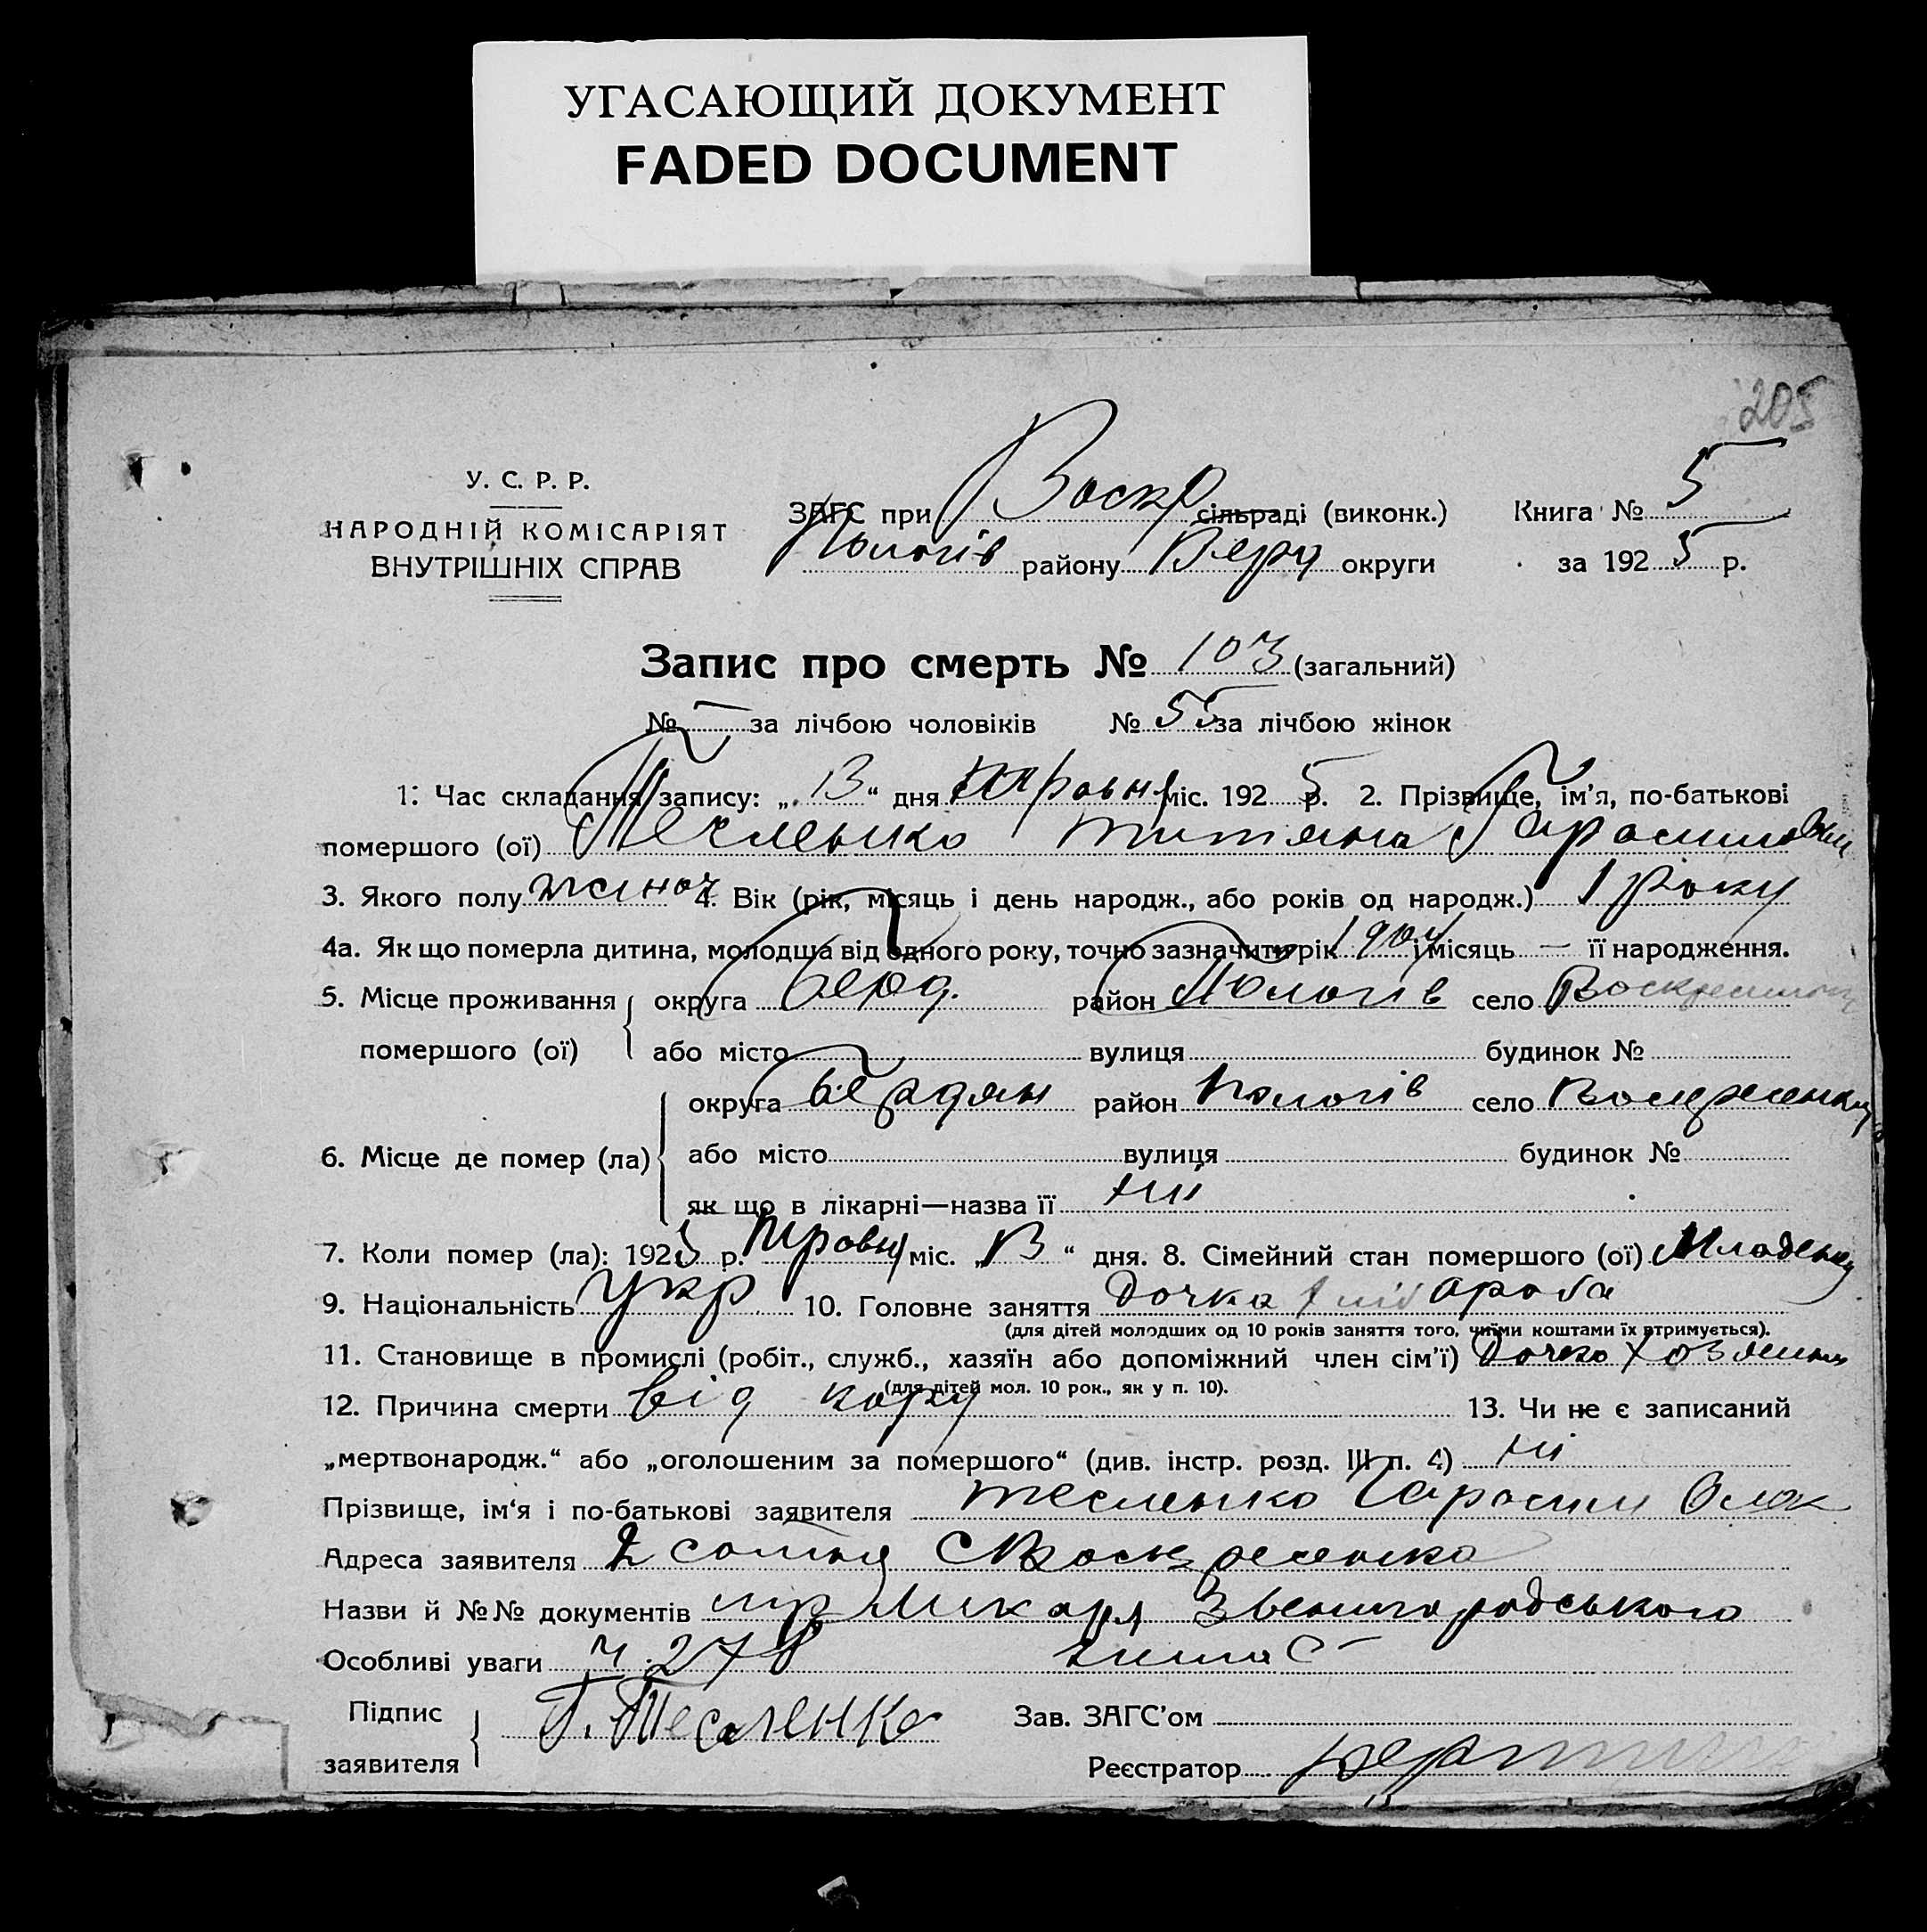 УГАСАЮЩИЙ ДОКУМЕНТ
FADED DOCUMENT
205
У. С. Р. Р.
НАРОДНІЙ КОМІСАРІЯТ
ВНУТРІШНІХ СПРАВ
ЗАГС при Воскр сільраді (виконк.) Книга № 5
Пологів району Берд округи за 1925 р.
Запис про смерть № 103 (загальний)
№ за лічбою чоловіків № 55 за лічбою жінок
1. Час складання запису: „13“ дня Травня міс. 1925 р. 2. Прізвище, ім’я, по-батькові
помершого (ої) Тесленко Титяна Гарасимовни
3. Якого полу жіноч 4. Вік (рік, місяць і день народж., або років од народж.) 1 року
4а. Як що померла дитина, молодша від одного року, точно зазначити рік і місяць — її народження.
5. Місце проживання округа Берд. район Пологів село
помершого (ої) або місто вулиця будинок №
округа Бердян район Пологів село
6. Місце де помер (ла) або місто вулиця будинок №
як що в лікарні—назва її ні
7. Коли помер (ла): 1925 р. Травня міс. „13“ дня. 8. Сімейний стан помершого (ої) Младенец
9. Національність Укр 10. Головне заняття Дочка хлібороба
(для дітей молодших од 10 років заняття того, чиїми коштами їх втримується).
11. Становище в промислі (робіт., служб., хазяїн або допоміжний член сім’ї) Дочка
(для дітей мол. 10 рок., як у п. 10).
12. Причина смерти від кору 13. Чи не є записаний
„мертвонародж.“ або „оголошеним за помершого“ (див. інстр. розд. III п. 4) ні
Прізвище, ім‘я і по-батькові заявителя Тесленко Гарасим Олек
Адреса заявителя 2 сотня С Воскресенка
Назви й №№ документів Звенигородського
Особливі уваги ч. 278
Підпис
заявителя Г. Тесленко
Зав. ЗАГС’ом
Реєстратор